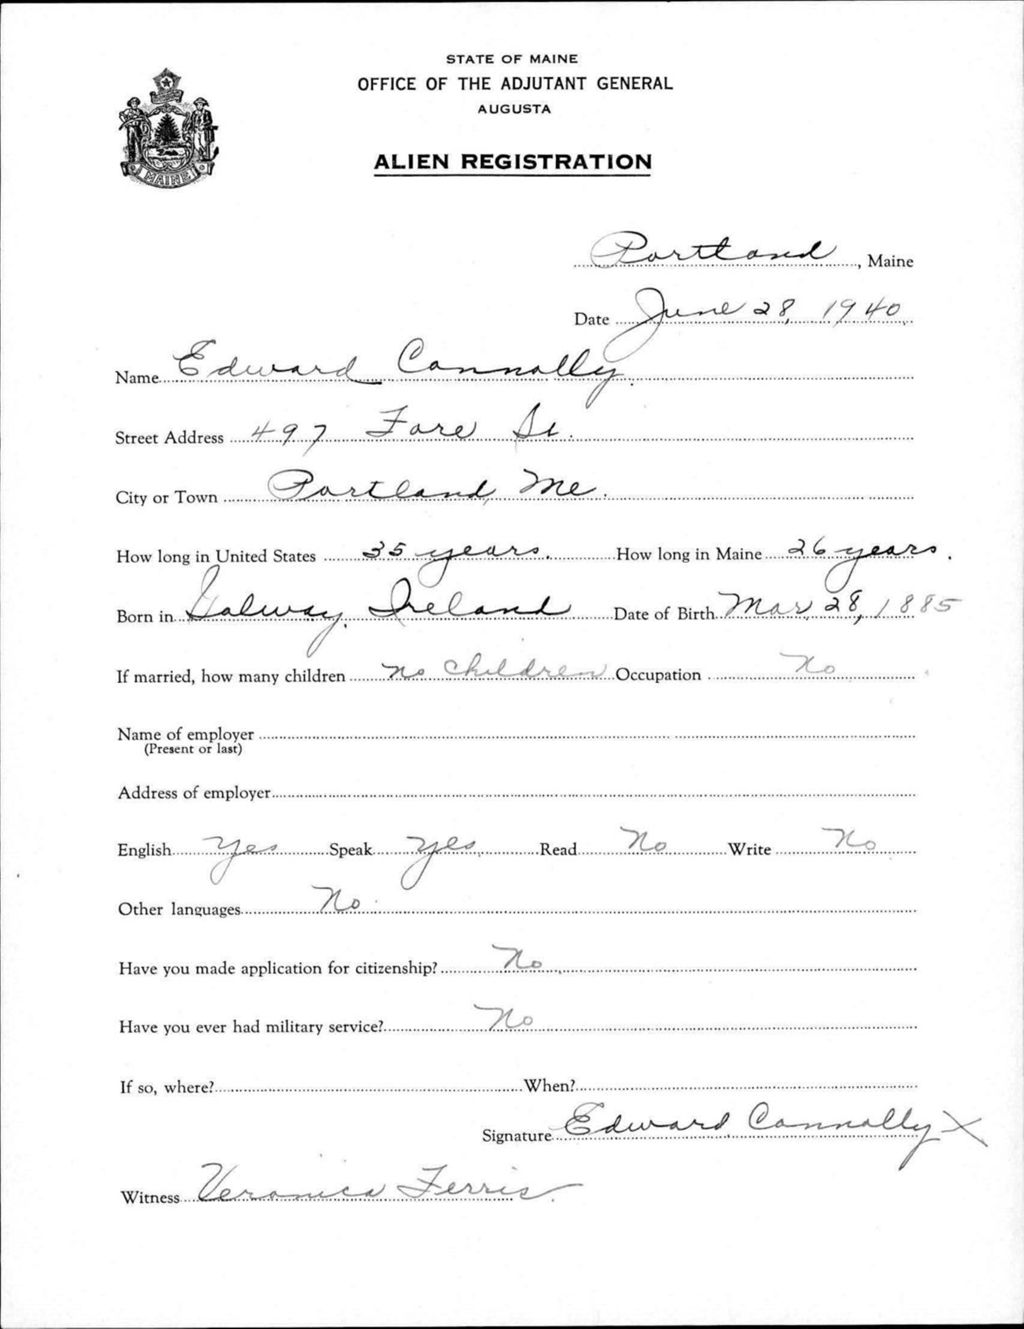 STATE OF MAINE
OFFICE OF THE ADJUTANT GENERAL
AUGUSTA
ALIEN REGISTRATION
MAINE
Portland, Maine
Date June 28, 1940
Name Edward Connolly
Street Address 497 Fore St.
City or Town Portland, Me.
How long in United States 35 years. How long in Maine 26 years.
Born in Galway, Ireland Date of Birth Mar 28, 1885
If married, how many children no children Occupation No
Name of employer
(Present or last)
Address of employer
English yes Speak yes Read No Write No
Other languages No
Have you made application for citizenship? No
Have you ever had military service? No
If so, where? When?
Signature Edward Connolly X
Witness Veronica Ferris